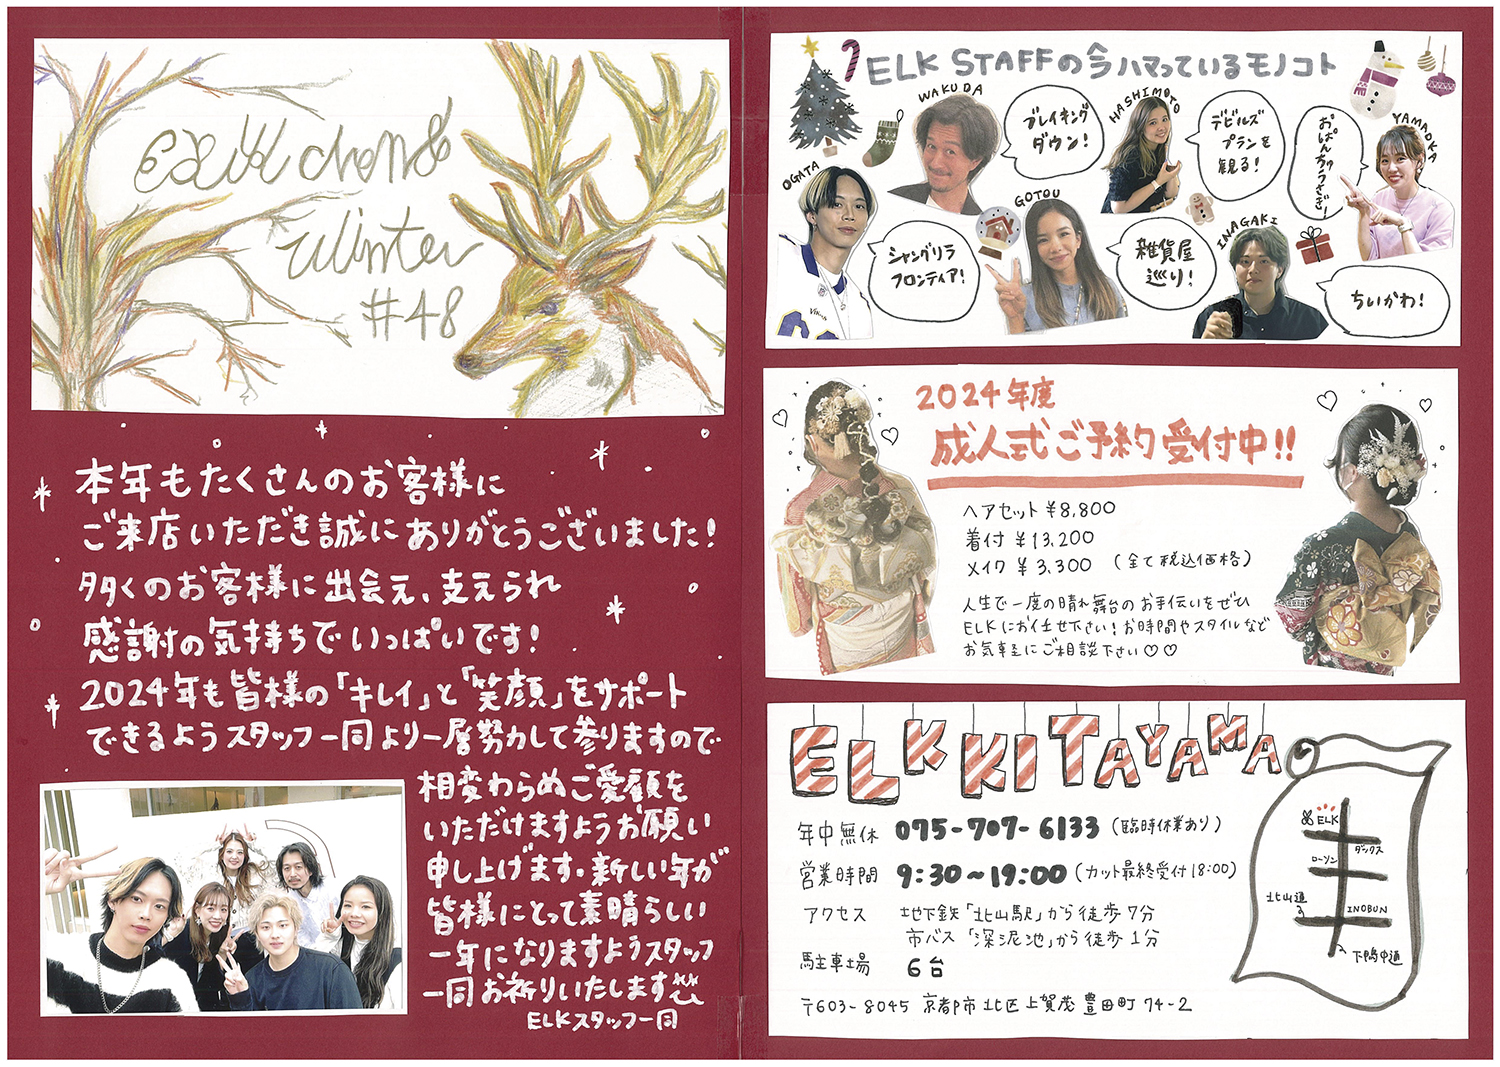 Winter
#48
本年もたくさんのお客様に
ご来店いただき誠にありがとうございました!
多くのお客様に出会え、支えられ
感謝の気持ちでいっぱいです!
2024年も皆様の「キレイ」と「笑顔」をサポート
できるようスタッフ一同より一層努力して参りますので
相変わらぬご愛顧を
いただけますようお願い
申し上げます。新しい年が
皆様にとって素晴らしい
一年になりますようスタッフ
一同お祈りいたします
ELKスタッフ一同
ELK STAFFの今ハマっているモノコト
WAKUDA
ブレイキング
ダウン!
HASHIMOTO
デビルズ
プランを
観る!
おぱんちゅうさぎ!
YAMAOKA
OGATA
シャングリラ
フロンティア!
GOTOU
雑貨屋
巡り!
INAGAKI
ちいかわ!
2024年度
成人式ご予約受付中!!
ヘアセット ¥8,800
着付 ¥13,200
メイク ¥3,300 (全て税込価格)
人生で一度の晴れ舞台のお手伝いをぜひ
ELKにお任せ下さい!お時間やスタイルなど
お気軽にご相談下さい♡♡
ELK KITAYAMA
年中無休 075-707-6133 (臨時休業あり)
営業時間 9:30~19:00 (カット最終受付18:00)
アクセス 地下鉄「北山駅」から徒歩7分
市バス「深泥池」から徒歩1分
駐車場 6台
〒603-8045 京都市北区上賀茂豊田町74-2
ELK
ダックス
ローソン
北山通
INOBUN
下鴨中通